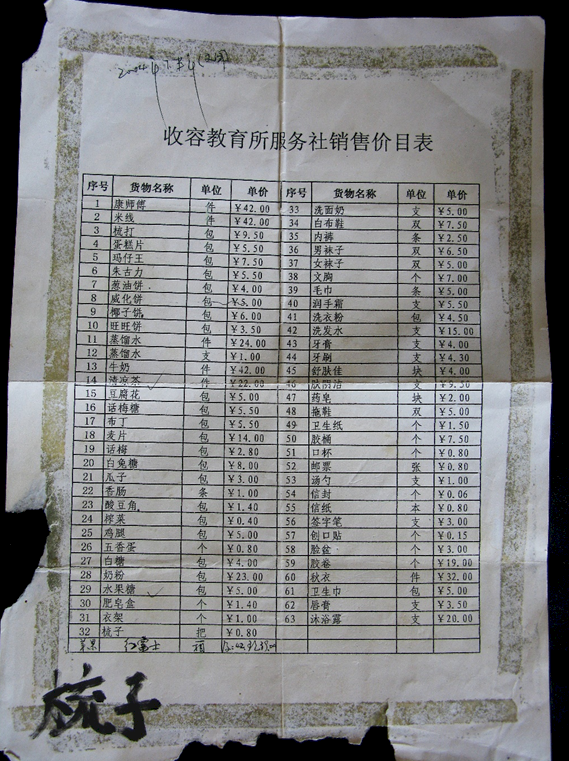 2004
收容教育所服务社销售价目表
序号 货物名称 单位 单价 序号 货物名称 单位 单价
1 康师傅 件 ¥42.00 33 洗面奶 支 ¥5.00
2 米线 件 ¥42.00 34 白布鞋 双 ¥7.50
3 梳打 包 ¥9.50 35 内裤 条 ¥2.50
4 蛋糕片 包 ¥5.50 36 男袜子 双 ¥6.50
5 玛仔王 包 ¥7.50 37 女袜子 双 ¥5.00
6 朱古力 包 ¥5.50 38 文胸 个 ¥7.00
7 葱油饼 包 ¥4.00 39 毛巾 条 ¥5.00
8 威化饼 包 ¥5.00 40 润手霜 支 ¥5.50
9 椰子饼 包 ¥6.00 41 洗衣粉 包 ¥4.50
10 旺旺饼 包 ¥3.50 42 洗发水 支 ¥15.00
11 蒸馏水 件 ¥24.00 43 牙膏 支 ¥4.00
12 蒸馏水 支 ¥1.00 44 牙刷 支 ¥4.30
13 牛奶 件 ¥42.00 45 舒肤佳 块 ¥4.00
14 清凉茶 件 ¥22.00 46 肤阴洁 支 ¥9.50
15 豆腐花 包 ¥5.00 47 药皂 块 ¥2.00
16 话梅糖 包 ¥5.50 48 拖鞋 双 ¥5.00
17 布丁 包 ¥5.50 49 卫生纸 个 ¥1.50
18 麦片 包 ¥14.00 50 胶桶 个 ¥7.50
19 话梅 包 ¥2.80 51 口杯 个 ¥0.80
20 白兔糖 包 ¥8.00 52 邮票 张 ¥0.80
21 瓜子 包 ¥3.00 53 汤勺 支 ¥1.00
22 香肠 条 ¥1.00 54 信封 个 ¥0.06
23 酸豆角 包 ¥1.40 55 信纸 本 ¥0.80
24 榨菜 包 ¥0.40 56 签字笔 支 ¥3.00
25 鸡腿 包 ¥5.00 57 创口贴 个 ¥0.15
26 五香蛋 个 ¥0.80 58 脸盆 个 ¥3.00
27 白糖 包 ¥4.00 59 胶卷 个 ¥19.00
28 奶粉 包 ¥23.00 60 秋衣 件 ¥32.00
29 水果糖 包 ¥5.00 61 卫生巾 包 ¥5.00
30 肥皂盒 个 ¥1.40 62 唇膏 支 ¥3.50
31 衣架 个 ¥1.00 63 沐浴露 支 ¥20.00
32 梳子 把 ¥0.80
苹果 红富士 箱
梳子